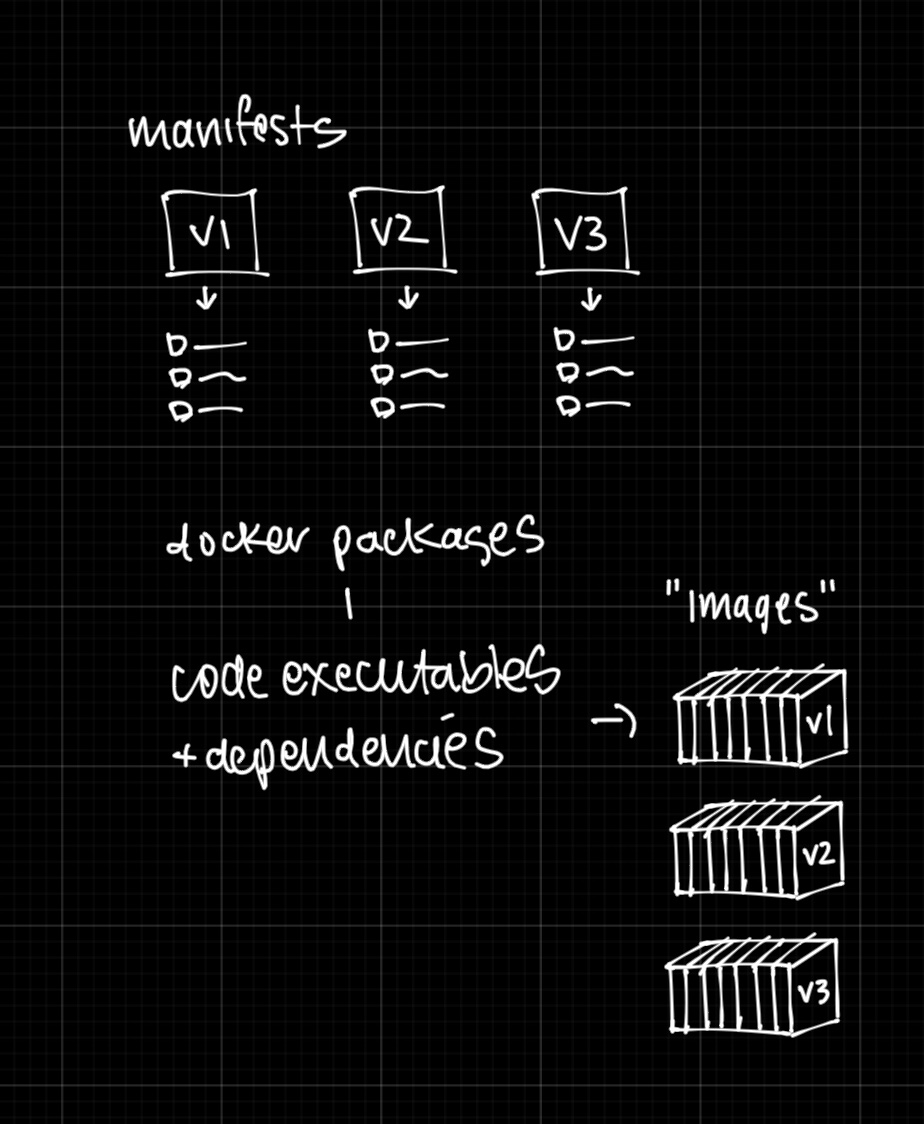 manifests
V1 V2 V3
docker packages
code executables
+ dependencies
"Images"
V1
V2
V3